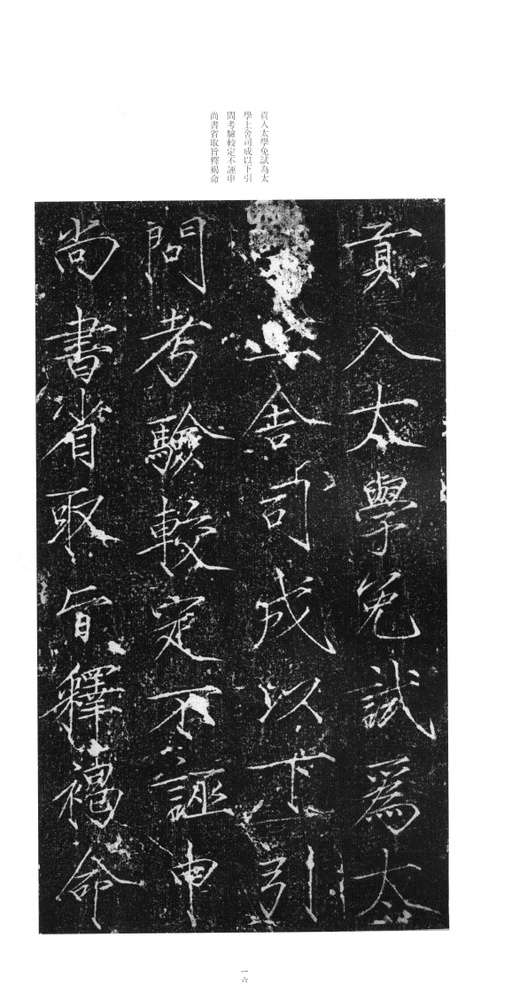 貢入太學免試為太
學上舍司成以下引
問考驗較定不誣申
尚書省取旨釋褐命
貢入太學免試爲太
上舍司成以下引
問考驗較定不誣申
尚書省取旨釋褐命
一六